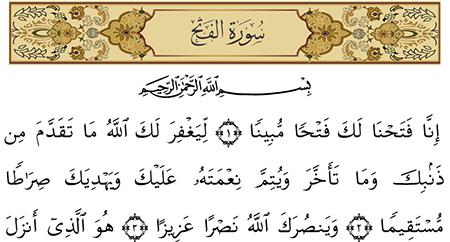 سُورَةُ الفَتْحِ
بِسْمِ اللَّهِ الرَّحْمَٰنِ الرَّحِيمِ
إِنَّا فَتَحْنَا لَكَ فَتْحًا مُّبِينًا ﴿١﴾ لِّيَغْفِرَ لَكَ اللَّهُ مَا تَقَدَّمَ مِن
ذَنۢبِكَ وَمَا تَأَخَّرَ وَيُتِمَّ نِعْمَتَهُۥ عَلَيْكَ وَيَهْدِيَكَ صِرَاطًا
مُّسْتَقِيمًا ﴿٢﴾ وَيَنصُرَكَ اللَّهُ نَصْرًا عَزِيزًا ﴿٣﴾ هُوَ الَّذِىٓ أَنزَلَ